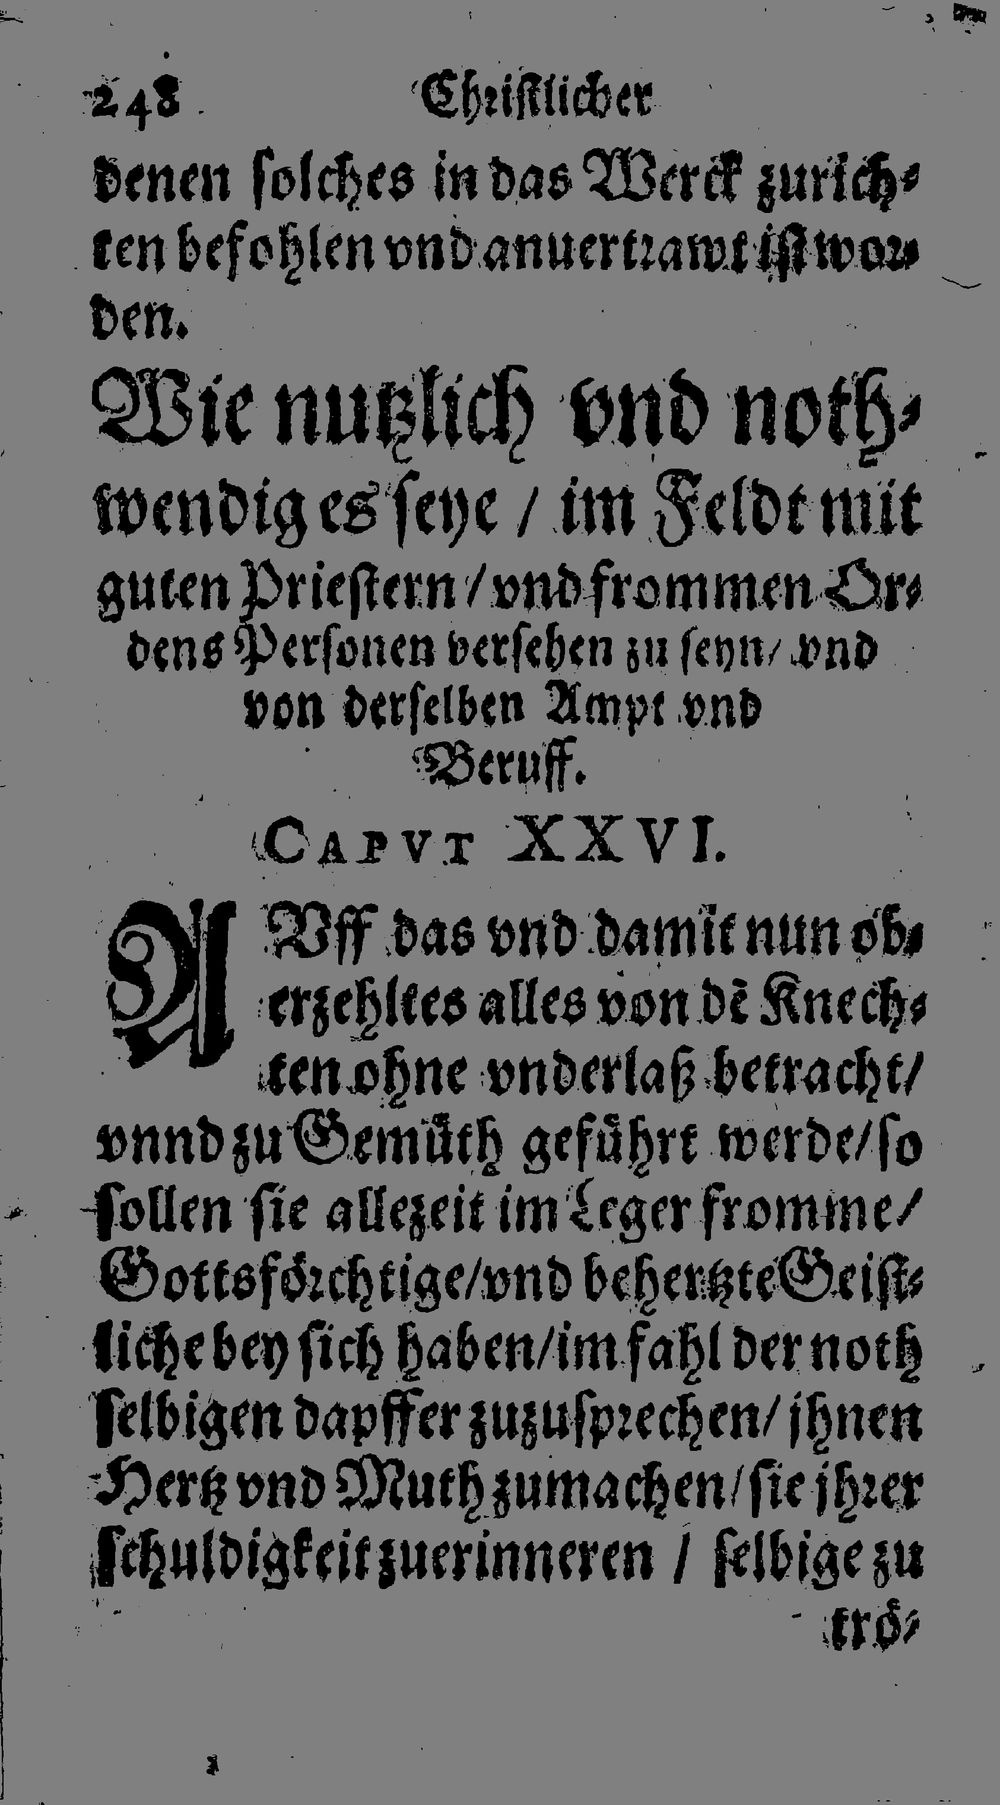 248 Christlicher
denen solches in das Werck zurich-
ten befohlen vnd anuertrawt ist wor-
den.
Wie nutzlich vnd noth-
wendig es seye / im Feldt mit
guten Priestern / vnd frommen Or-
dens Personen versehen zu seyn / vnd
von derselben Ampt vnd
Beruff.
CAPVT XXVI.
AVff das vnd damit nun ob-
erzehltes alles von dē Knech-
ten ohne vnderlaß betracht /
vnnd zu Gemüth geführt werde / so
sollen sie allezeit im Leger fromme /
Gottsförchtige / vnd behertzte Geist-
liche bey sich haben / im fahl der noth
selbigen dapffer zuzusprechen / jhnen
Hertz vnd Muth zumachen / sie jhrer
schuldigkeit zuerinneren / selbige zu
trö-